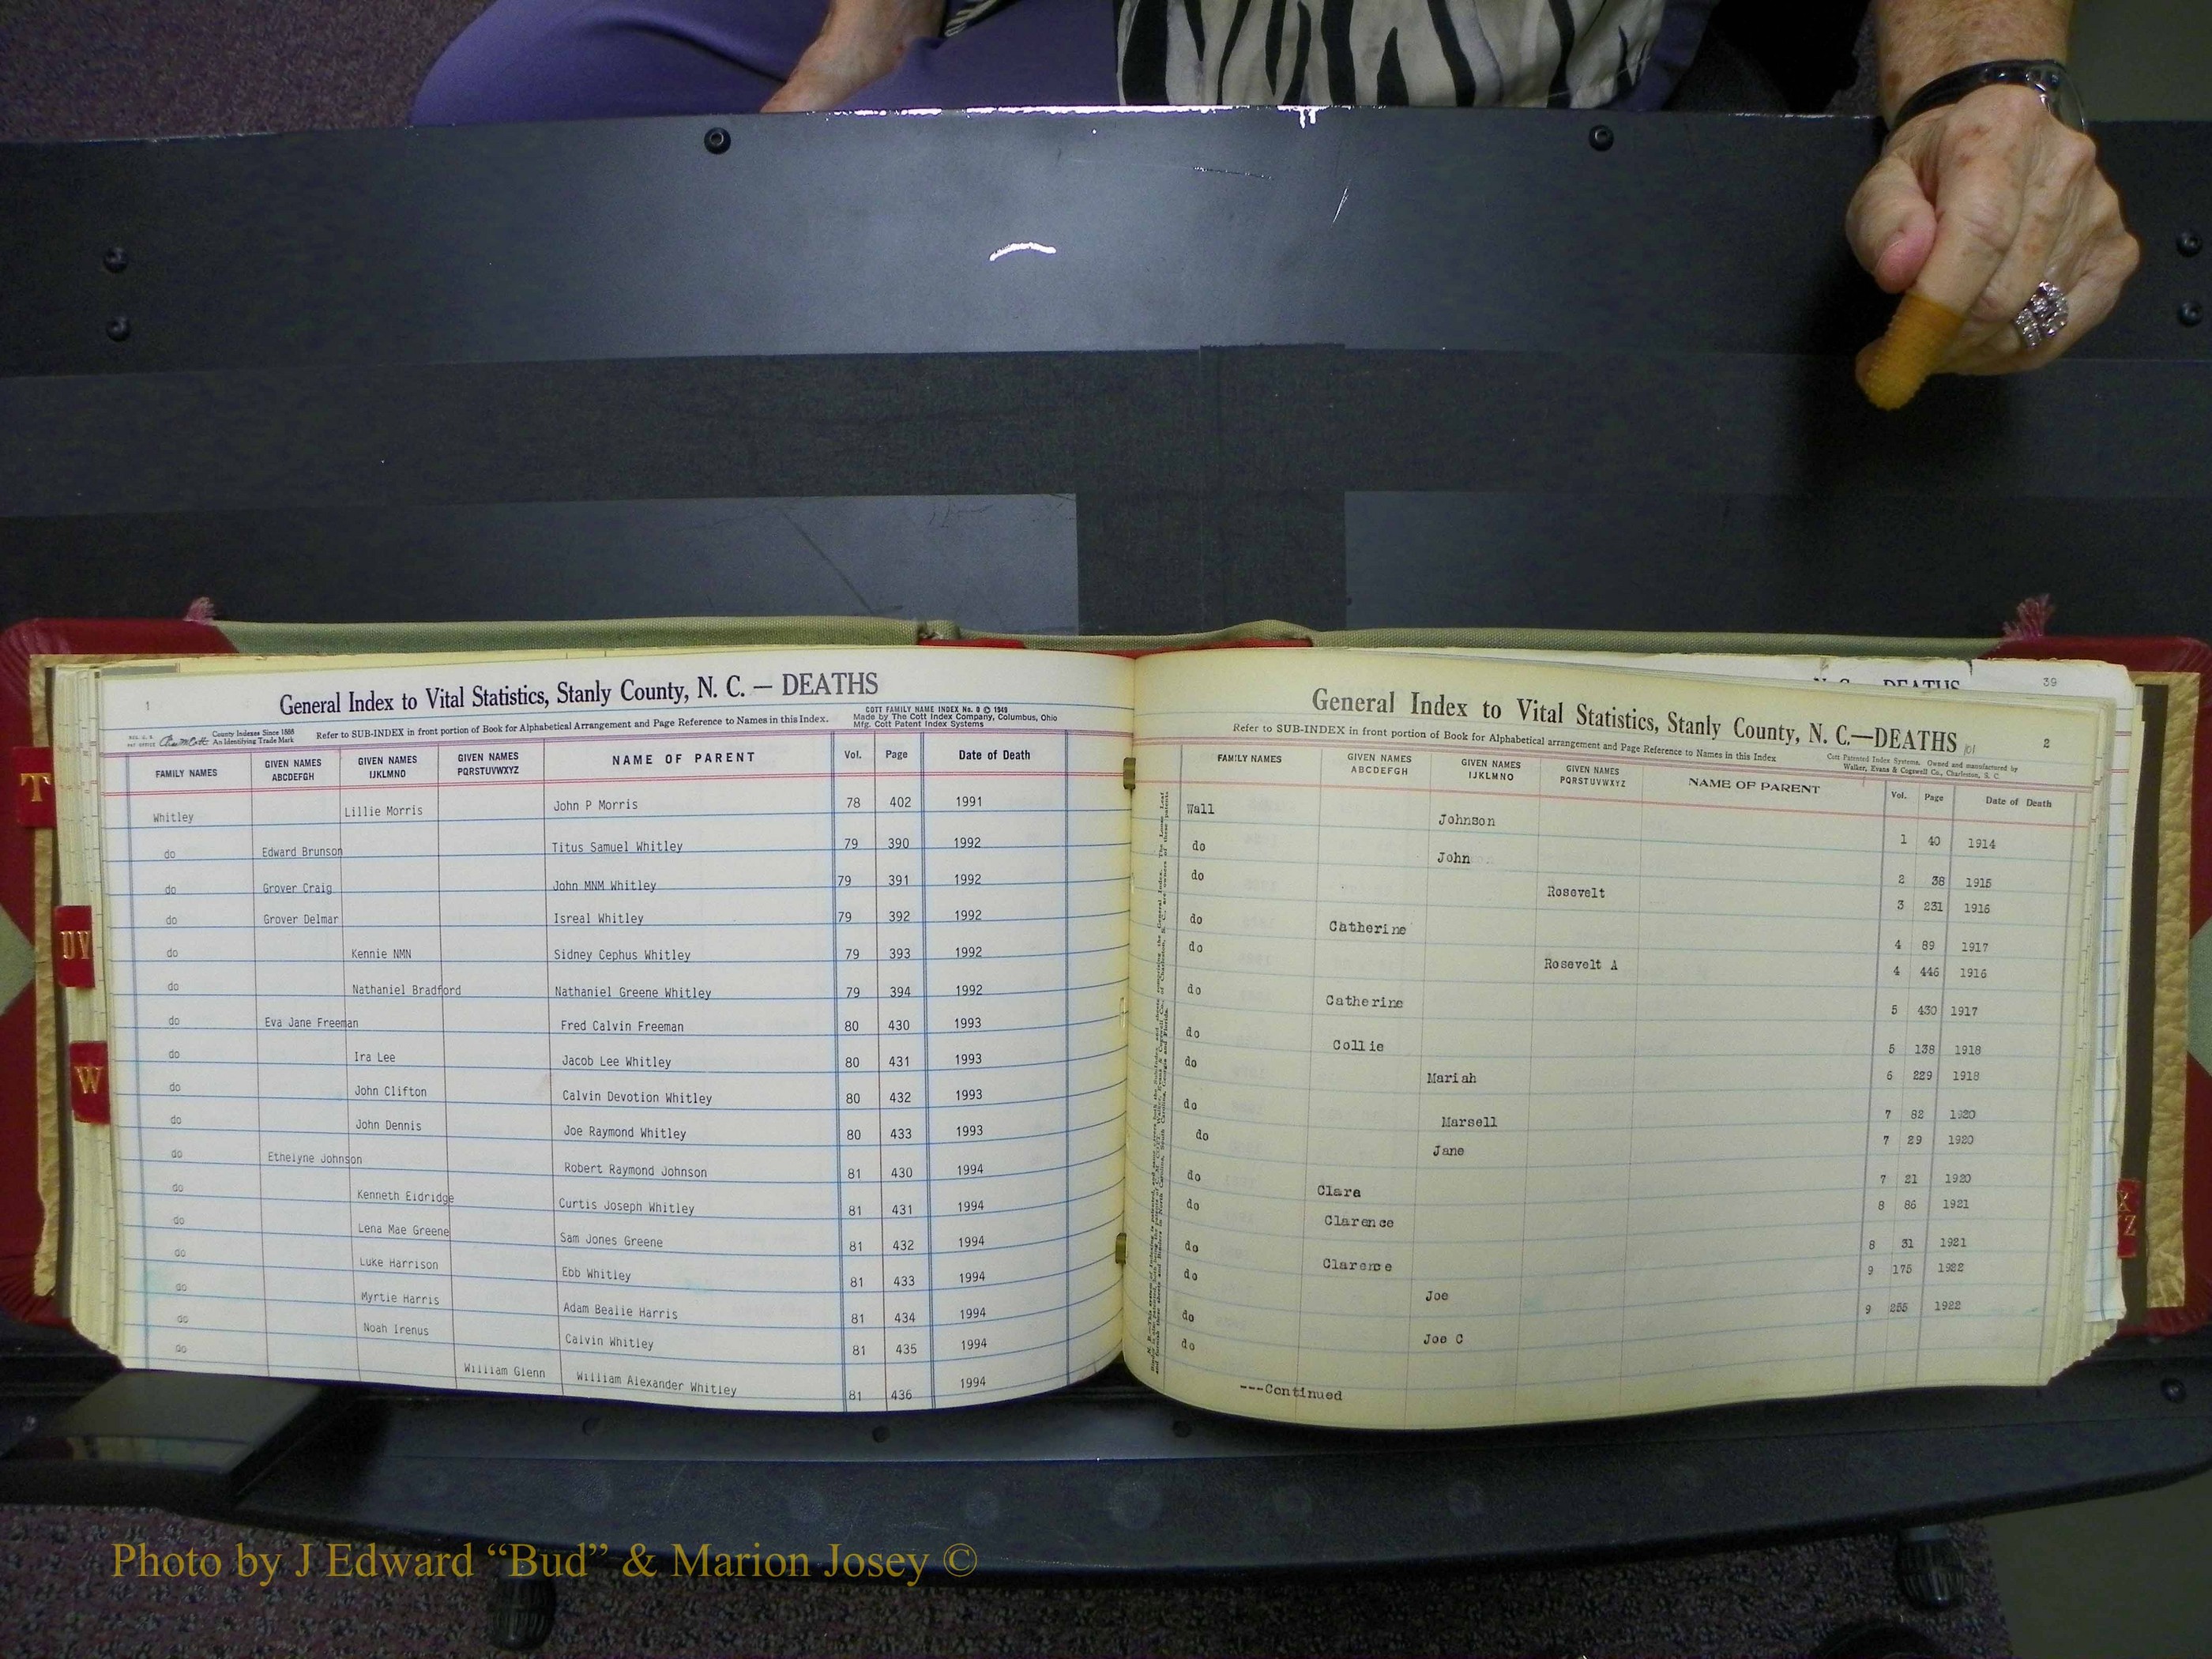 1
General Index to Vital Statistics, Stanly County, N. C. — DEATHS
COTT FAMILY NAME INDEX No. 8 © 1949
Made by The Cott Index Company, Columbus, Ohio
Mfg. Cott Patent Index Systems
County Indexes Since 1888
An Identifying Trade Mark
Refer to SUB-INDEX in front portion of Book for Alphabetical Arrangement and Page Reference to Names in this Index.
FAMILY NAMES GIVEN NAMES ABCDEFGH GIVEN NAMES IJKLMNO GIVEN NAMES PQRSTUVWXYZ NAME OF PARENT Vol. Page Date of Death
Whitley Lillie Morris John P Morris 78 402 1991
do Edward Brunson Titus Samuel Whitley 79 390 1992
do Grover Craig John MNM Whitley 79 391 1992
do Grover Delmar Isreal Whitley 79 392 1992
do Kennie NMN Sidney Cephus Whitley 79 393 1992
do Nathaniel Bradford Nathaniel Greene Whitley 79 394 1992
do Eva Jane Freeman Fred Calvin Freeman 80 430 1993
do Ira Lee Jacob Lee Whitley 80 431 1993
do John Clifton Calvin Devotion Whitley 80 432 1993
do John Dennis Joe Raymond Whitley 80 433 1993
do Ethelyne Johnson Robert Raymond Johnson 81 430 1994
do Kenneth Eldridge Curtis Joseph Whitley 81 431 1994
do Lena Mae Greene Sam Jones Greene 81 432 1994
do Luke Harrison Ebb Whitley 81 433 1994
do Myrtie Harris Adam Bealie Harris 81 434 1994
do Noah Irenus Calvin Whitley 81 435 1994
do William Glenn William Alexander Whitley 81 436 1994
T
UV
W
N. C. — DEATHS 39
General Index to Vital Statistics, Stanly County, N. C.—DEATHS 101 2
Refer to SUB-INDEX in front portion of Book for Alphabetical arrangement and Page Reference to Names in this Index
Cott Patented Index Systems. Owned and manufactured by
Walker, Evans & Cogswell Co., Charleston, S. C.
FAMILY NAMES GIVEN NAMES ABCDEFGH GIVEN NAMES IJKLMNO GIVEN NAMES PQRSTUVWXYZ NAME OF PARENT Vol. Page Date of Death
Wall Johnson 1 40 1914
do John 2 38 1915
do Rosevelt 3 231 1916
do Catherine 4 89 1917
do Rosevelt A 4 446 1916
do Catherine 5 430 1917
do Collie 5 138 1918
do Mariah 6 229 1918
do Marsell 7 82 1920
do Jane 7 29 1920
do Clara 7 21 1920
do Clarence 8 86 1921
do Clarence 8 31 1921
do Joe 9 175 1922
do Joe C 9 255 1922
do
---Continued
X
Z
Photo by J Edward “Bud” & Marion Josey ©